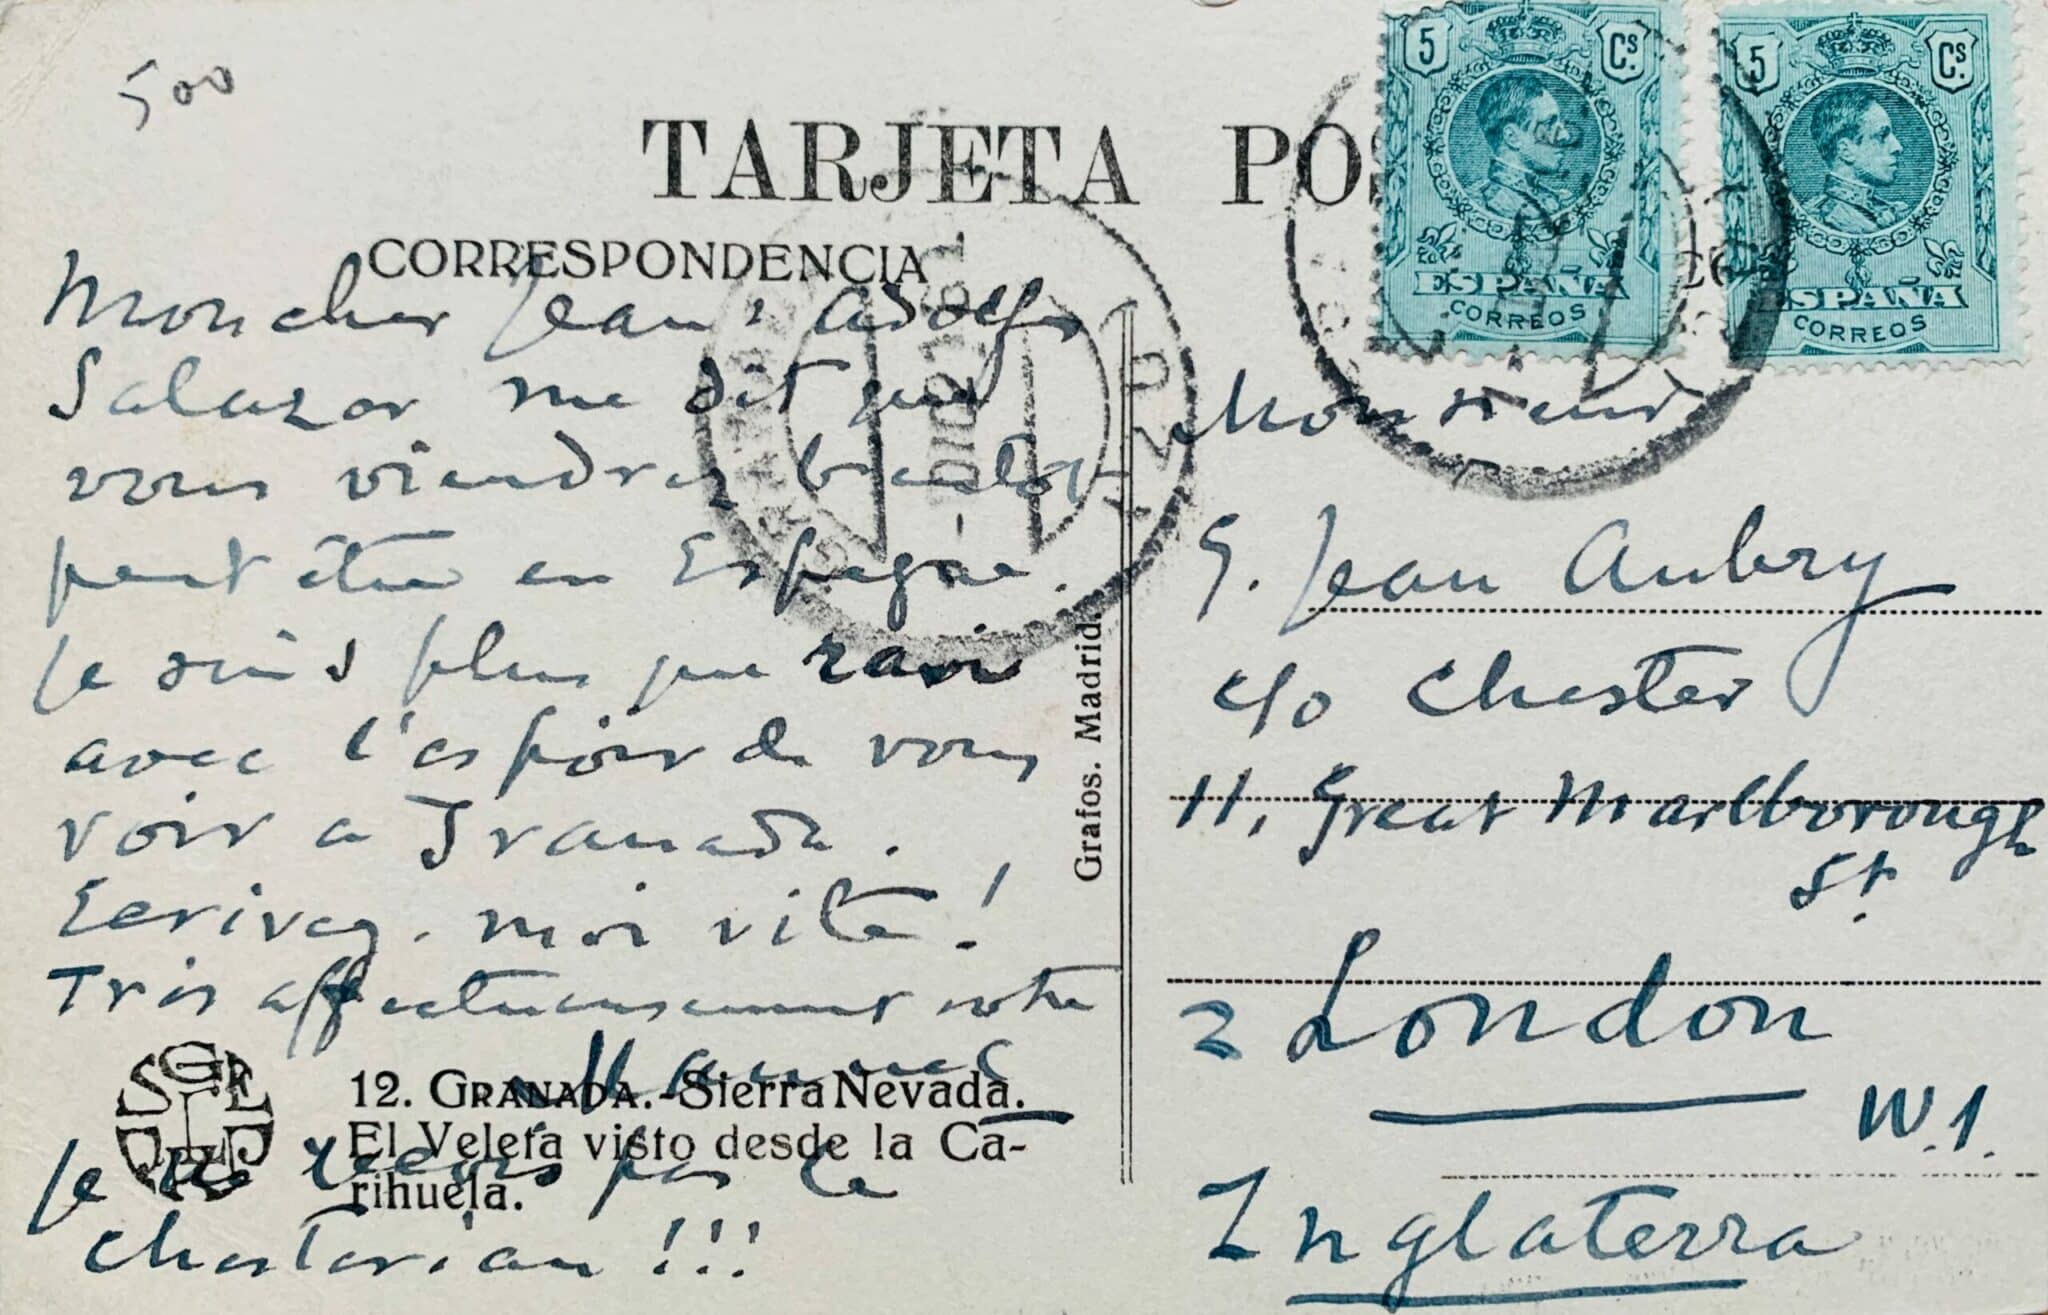 500
TARJETA POS
CORRESPONDENCIA
5 Cs.
ESPAÑA
CORREOS
5 Cs.
ESPAÑA
CORREOS
Mon cher Jean: Adolfo
Salazar me dit que
vous viendrez bientot
peut être en Espagne.
Je suis plus que ravi
avec l'espoir de vous
voir a Granada.
Ecrivez-moi vite!
Très affectueusement votre
Manuel
Je ne reçois pas le
Chesterian!!!
12. GRANADA.-Sierra Nevada.
El Veleta visto desde la Ca-
rihuela.
Grafos. Madrid.
DIC 21
Monsieur
G. Jean Aubry
c/o Chester
11, Great Marlborough
St.
London
W.1.
Inglaterra